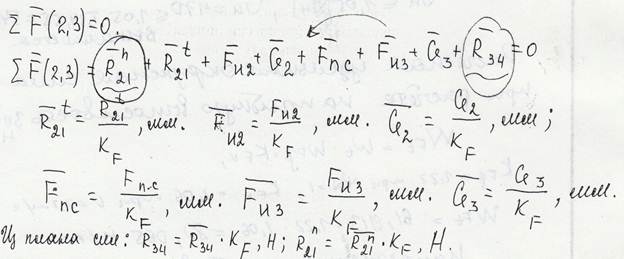 Σ F̅(2,3)=0.
Σ F̅(2,3)=R̅₂₁ⁿ+R̅₂₁ᵗ+F̅и2+G̅₂+F̅пс+F̅и3+G̅₃+R̅₃₄=0
R̅₂₁ᵗ=R₂₁ᵗ/K_F, мм. F̅и2=Fи2/K_F, мм. G̅₂=G₂/K_F, мм;
F̅пс=Fп.с/K_F, мм. F̅и3=Fи3/K_F, мм. G̅₃=G₃/K_F, мм.
Из плана сил: R₃₄=R̅₃₄·K_F, Н; R₂₁ⁿ=R̅₂₁ⁿ·K_F, Н.